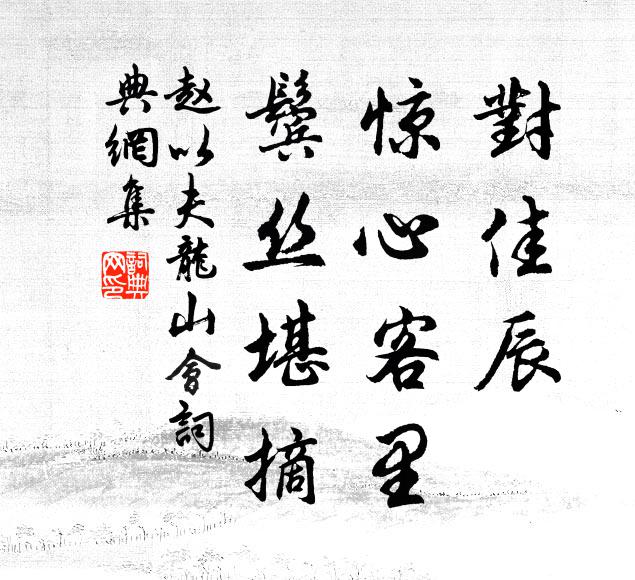 對佳辰
惊心客里
鬓丝堪摘
赵以夫龍山會詞
典網集
詞典网印